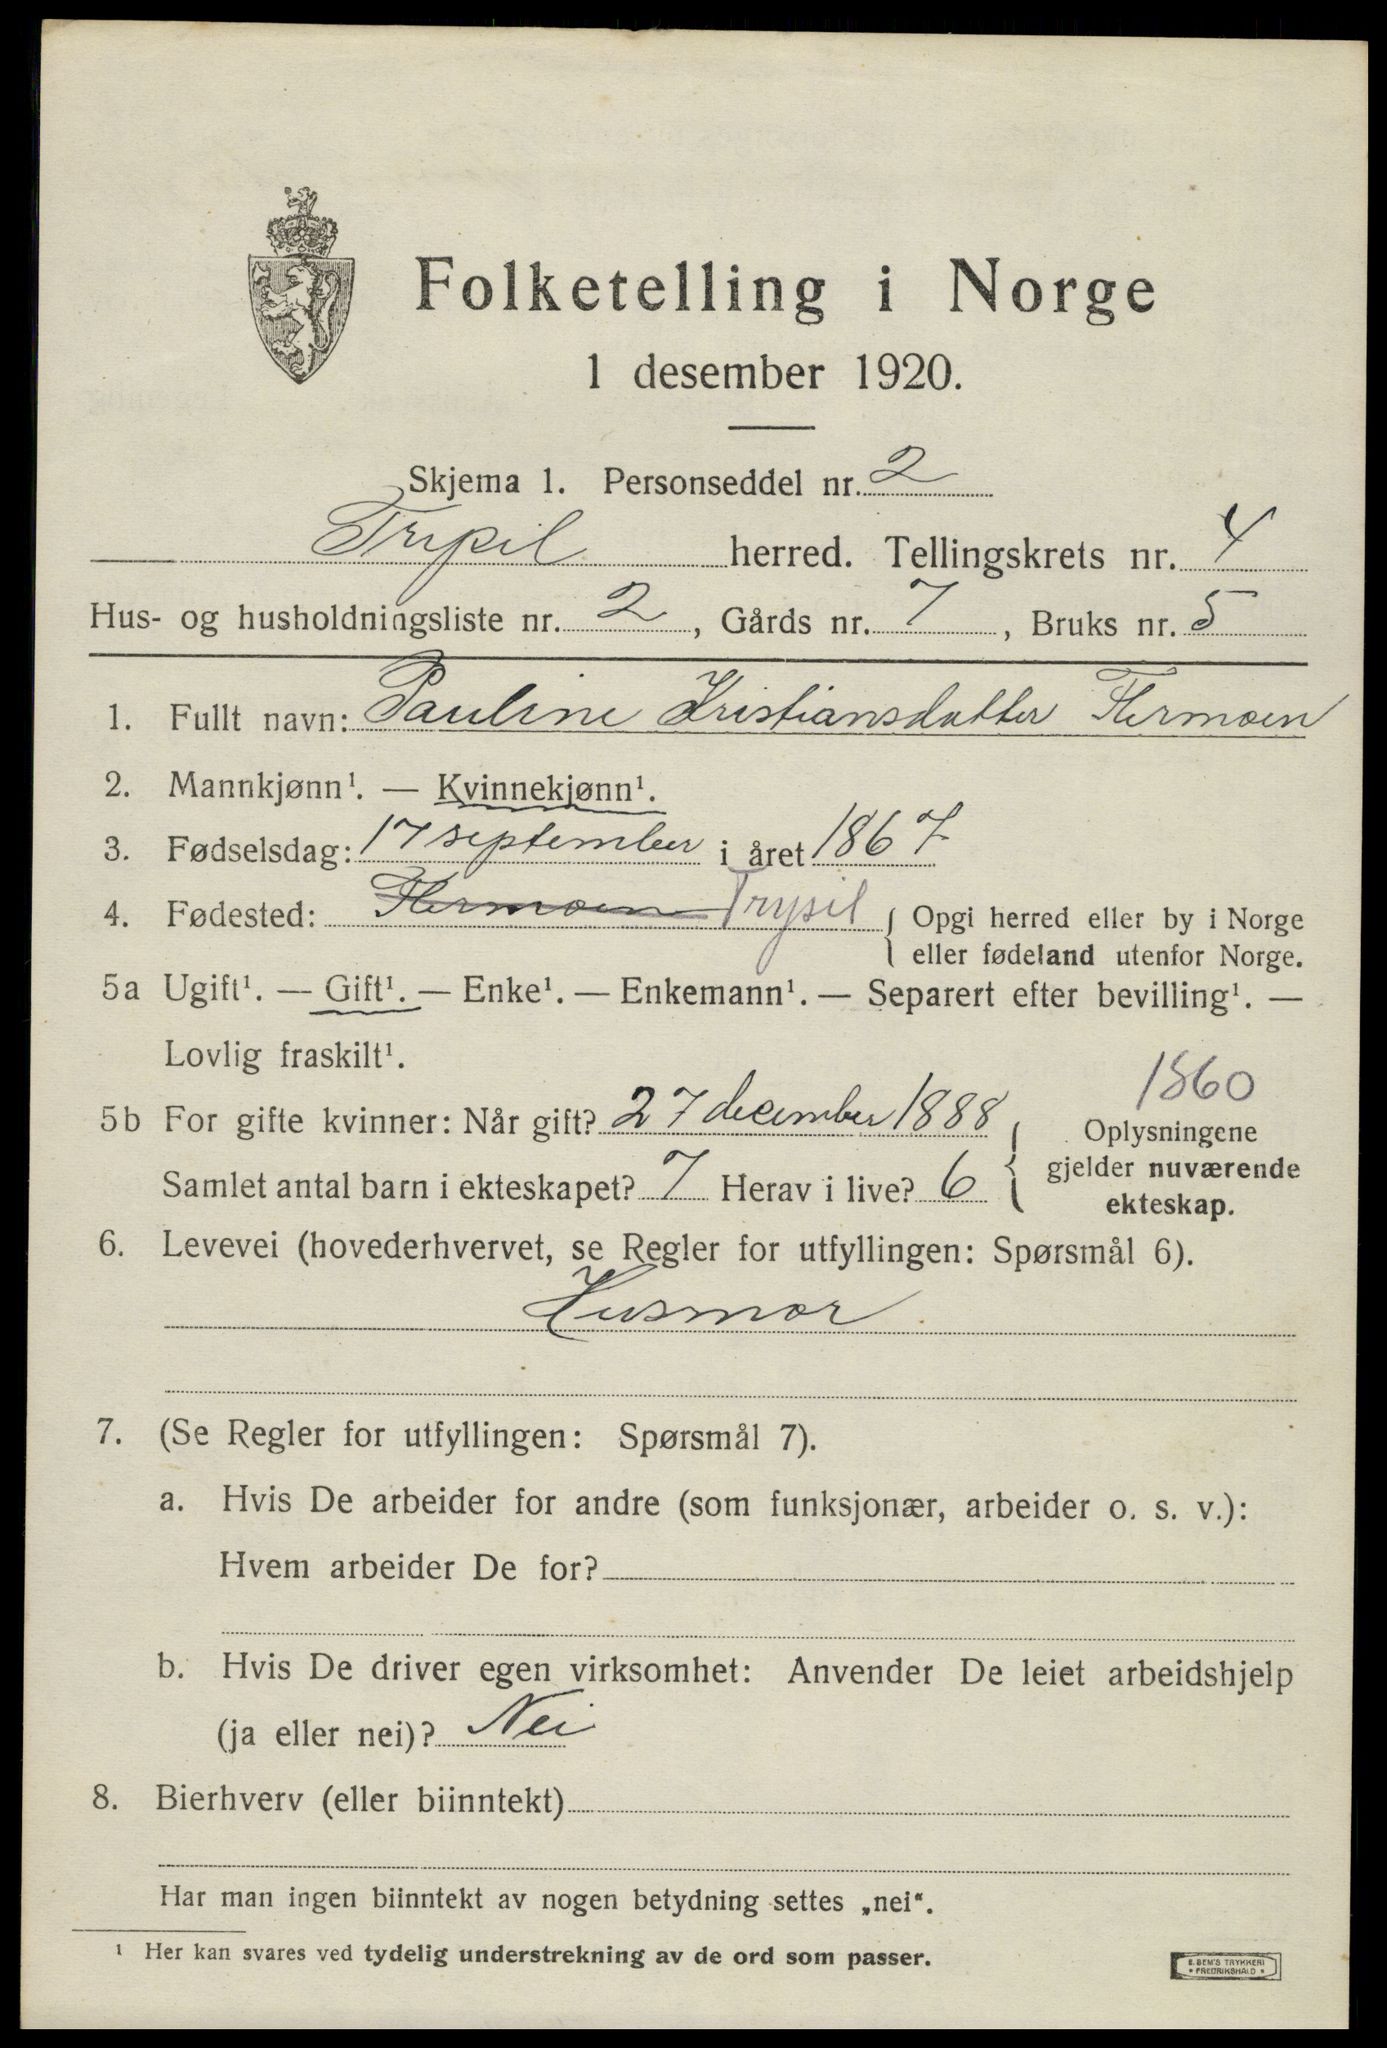 Folketelling i Norge
1 desember 1920.
Skjema 1. Personseddel nr. 2
Trysil herred. Tellingskrets nr. 4
Hus- og husholdningsliste nr. 2, Gårds nr. 7, Bruks nr. 5
1. Fullt navn: Pauline Kristiansdatter Flermoen
2. Mannkjønn¹. — Kvinnekjønn¹.
3. Fødselsdag: 17 september i året 1867
4. Fødested: Flermoen Trysil { Opgi herred eller by i Norge
eller fødeland utenfor Norge.
5a Ugift¹. — Gift¹. — Enke¹. — Enkemann¹. — Separert efter bevilling¹. —
Lovlig fraskilt¹.
1860
5b For gifte kvinner: Når gift? 27 december 1888
Samlet antal barn i ekteskapet? 7 Herav i live? 6
{ Oplysningene
gjelder nuværende
ekteskap.
6. Levevei (hovederhvervet, se Regler for utfyllingen: Spørsmål 6).
Husmor
7. (Se Regler for utfyllingen: Spørsmål 7).
a. Hvis De arbeider for andre (som funksjonær, arbeider o. s. v.):
Hvem arbeider De for?
b. Hvis De driver egen virksomhet: Anvender De leiet arbeidshjelp
(ja eller nei)? Nei
8. Bierhverv (eller biinntekt)
Har man ingen biinntekt av nogen betydning settes „nei“.
¹ Her kan svares ved tydelig understrekning av de ord som passer.
E. SEM'S TRYKKERI
* FREDRIKSHALD *